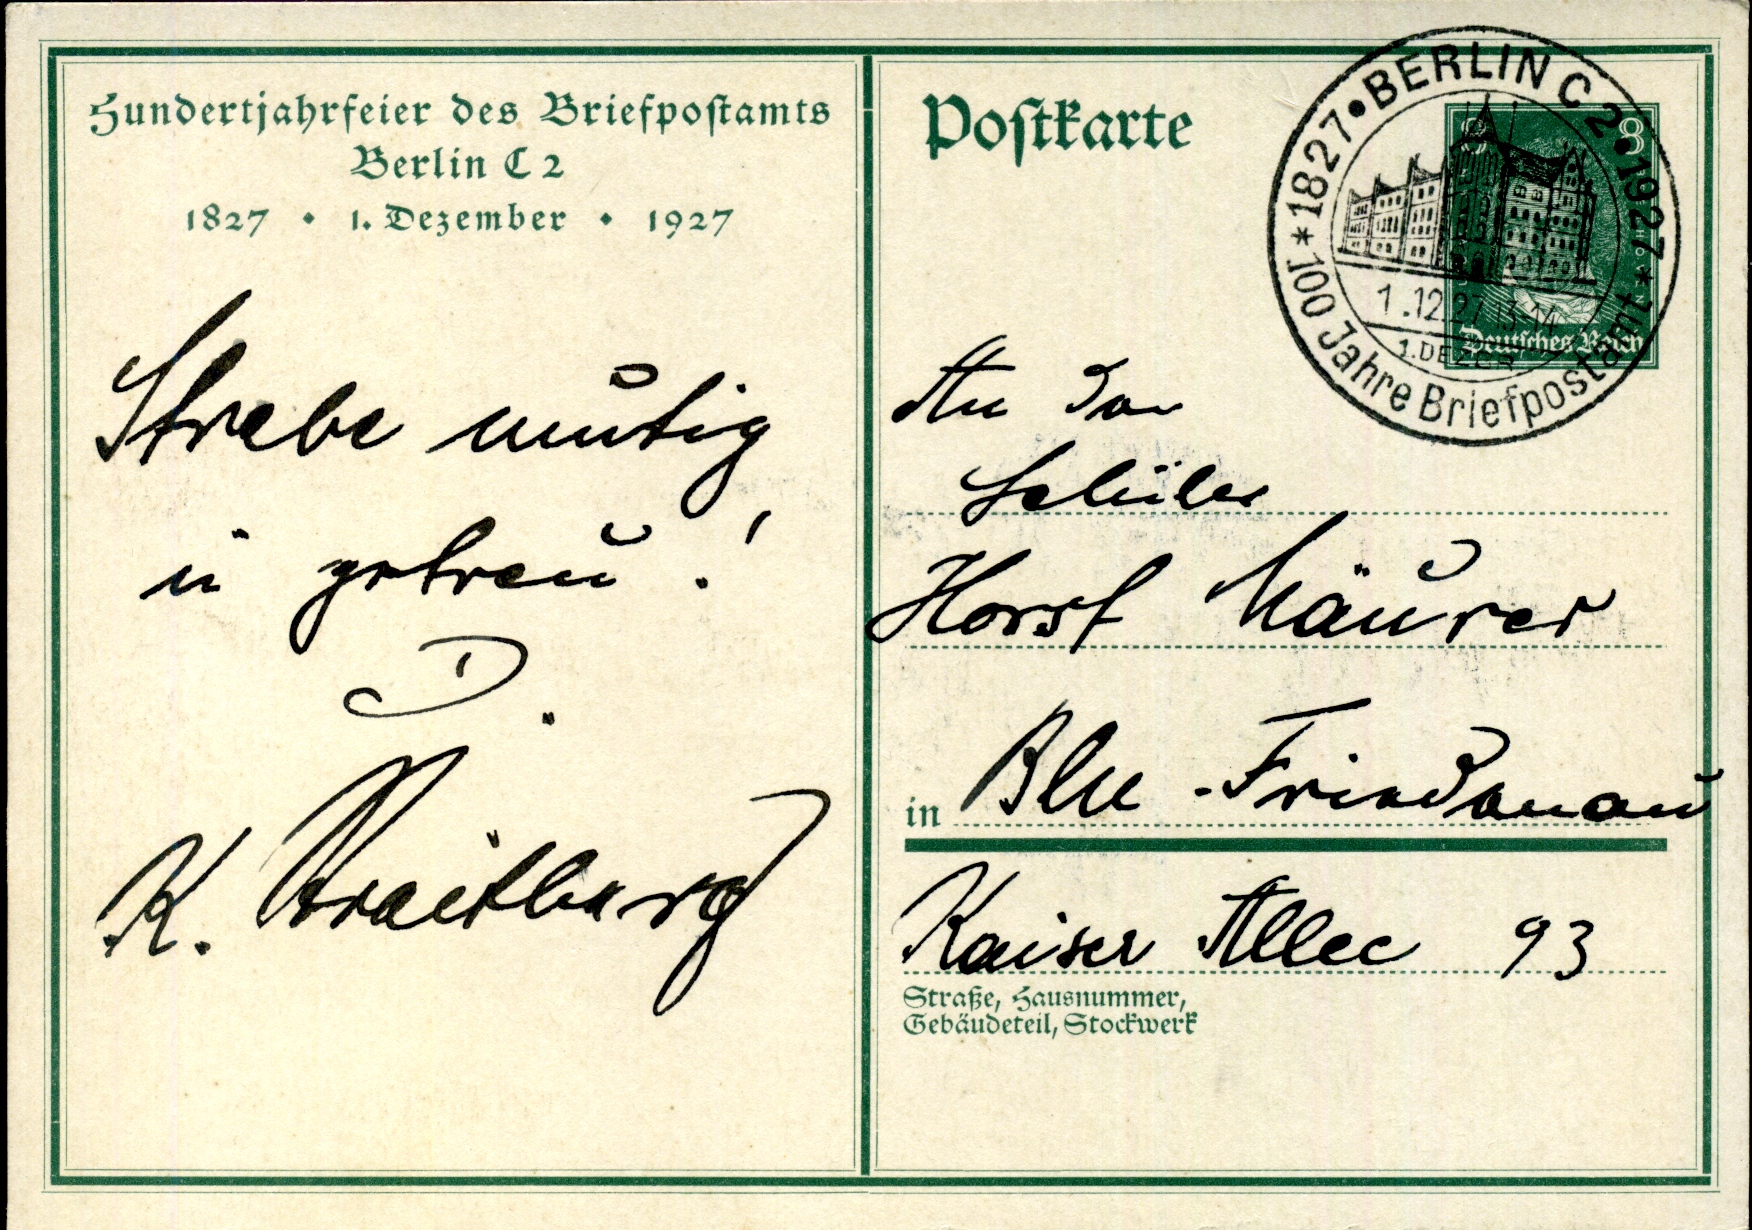 Hundertjahrfeier des Briefpostamts
Berlin C 2
1827 • 1. Dezember • 1927
Strebe mutig
u getreu!
D.
K.
Postkarte
1827 • BERLIN C 2 • 1927
* 100 Jahre Briefpostamt *
1.12.27 13-14
1. DEZEMBER
8 8
Deutsches Reich
An den
Schüler
Horst Mäurer
in Bln - Friedenau
Kaiser Allee 93
Straße, Hausnummer,
Gebäudeteil, Stockwerk